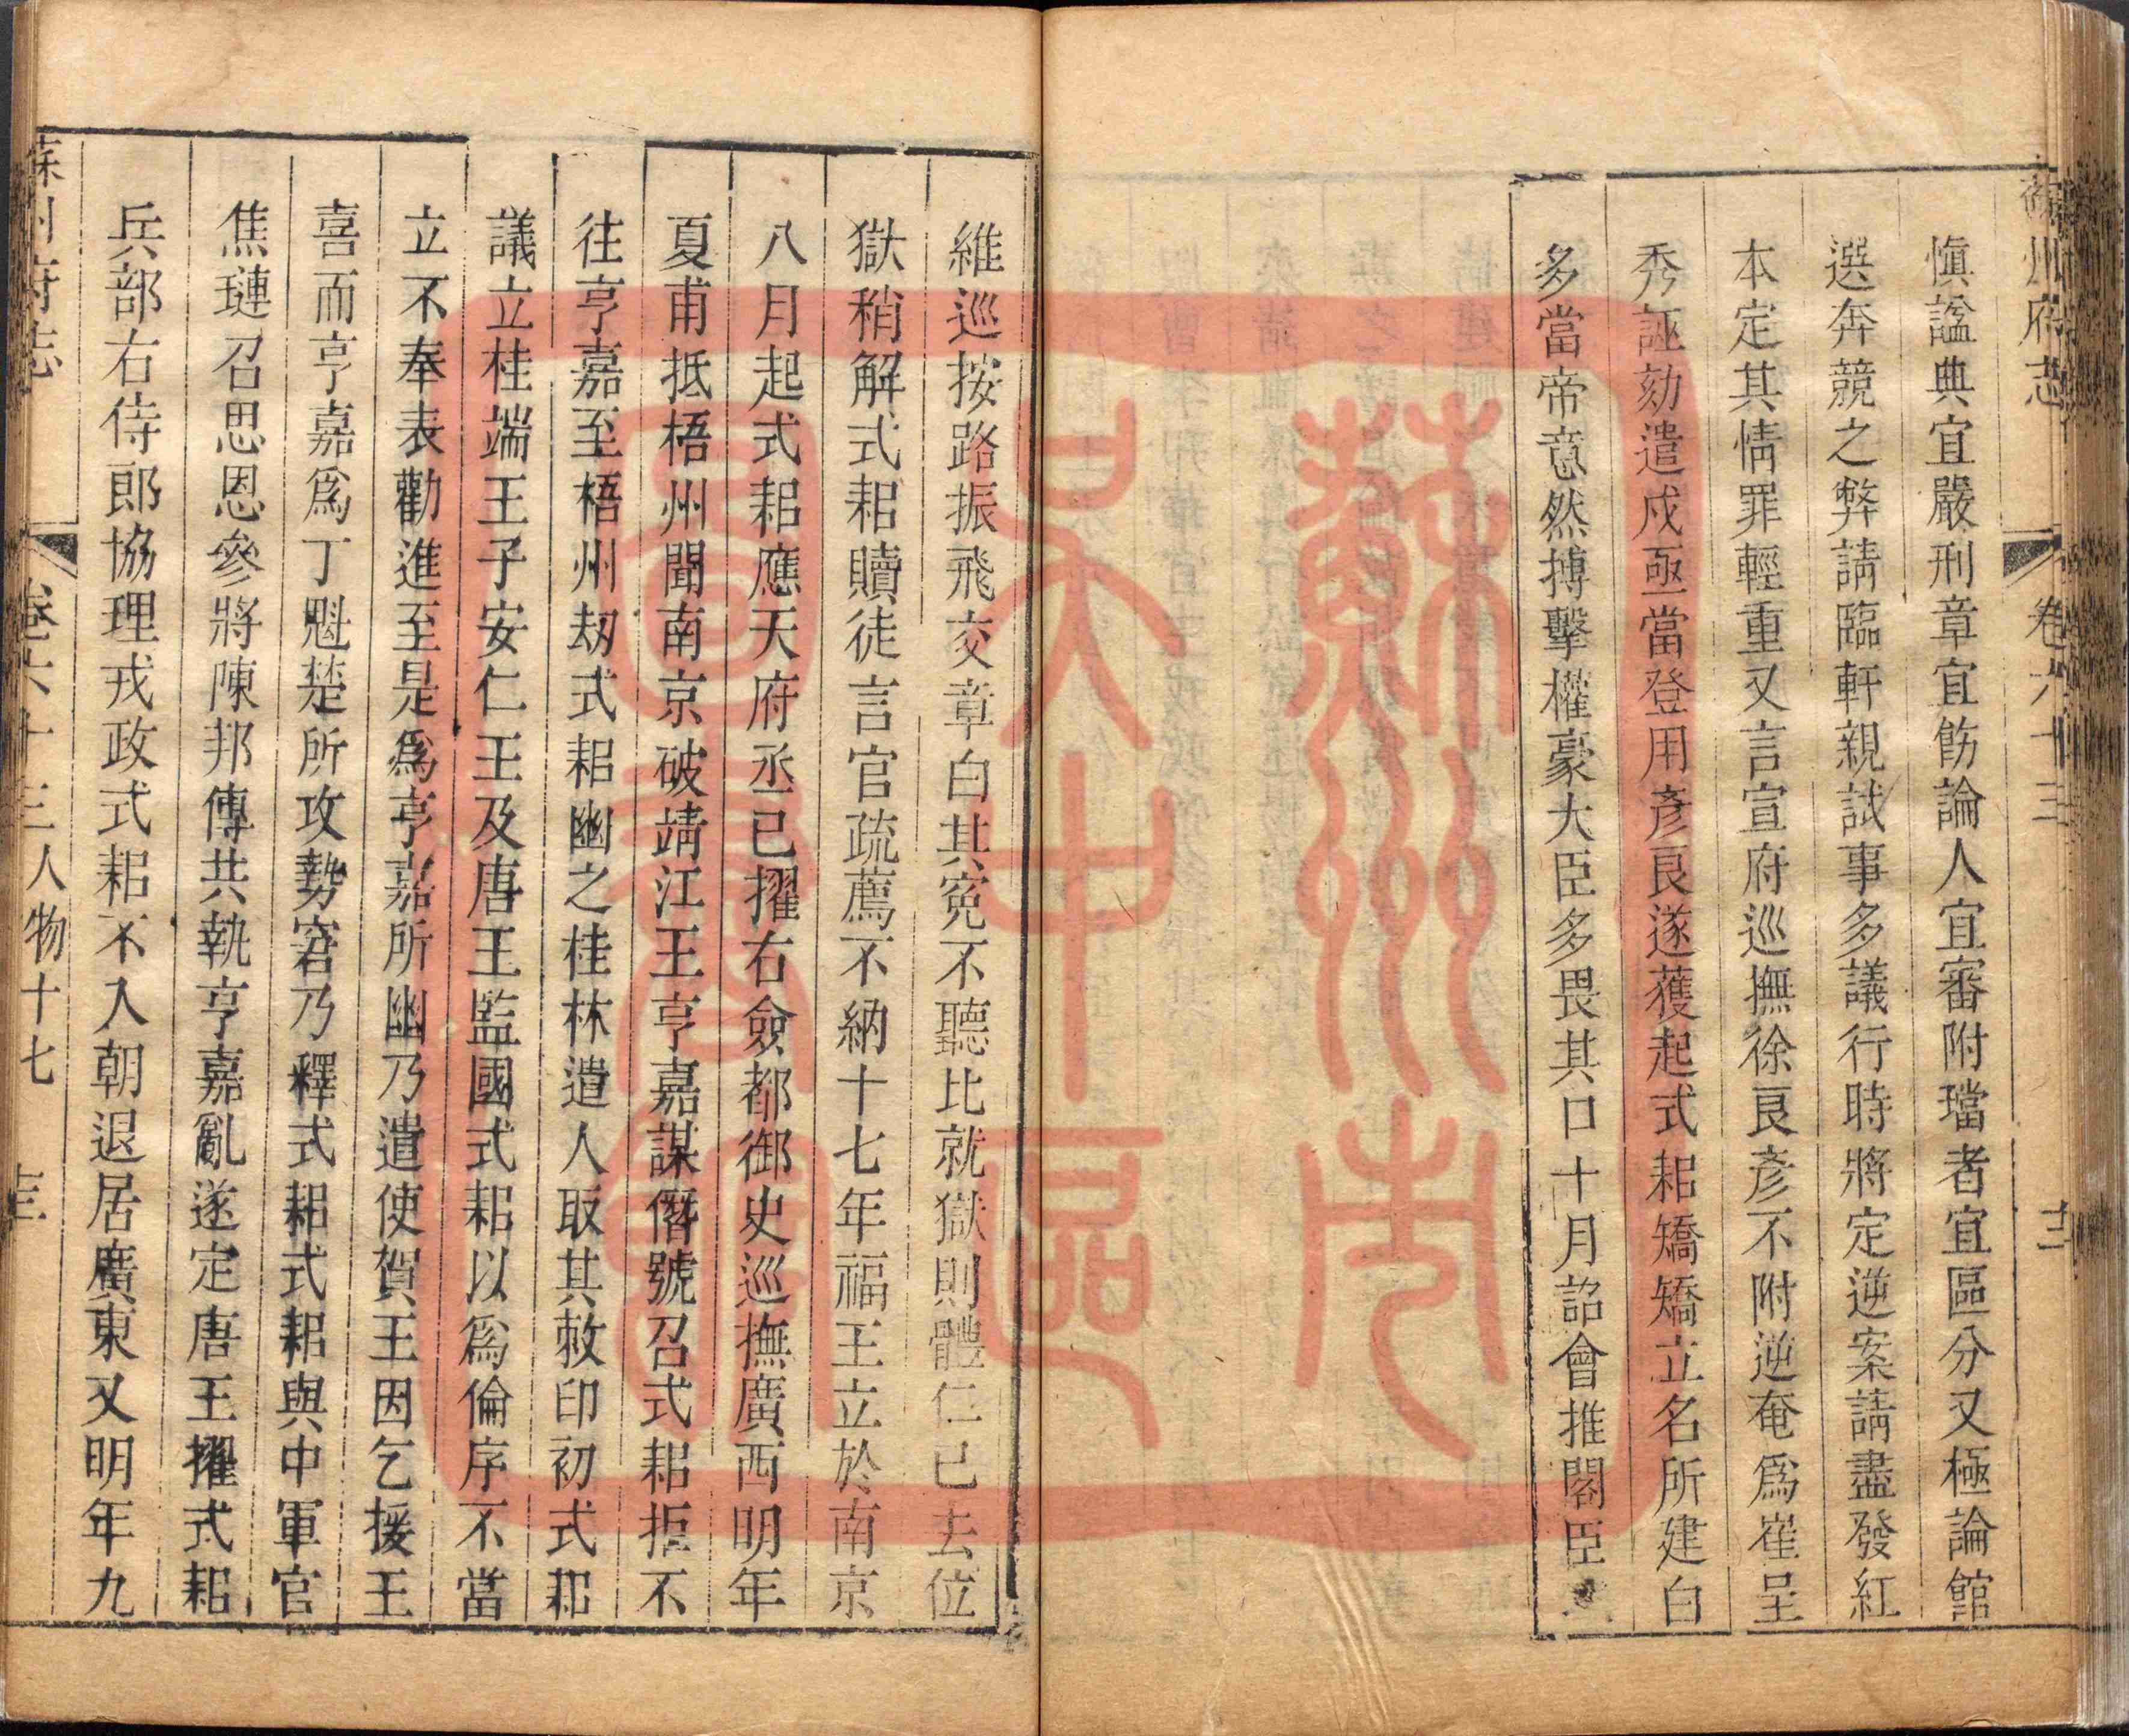 蘇州府志 卷六十三 十二
愼諡典宜嚴刑章宜飭論人宜審附璫者宜區分又極論館
選奔競之弊請臨軒親試事多議行時將定逆案請盡發紅
本定其情罪輕重又言宣府巡撫徐良彥不附逆奄爲崔呈
秀誣劾遣戍亟當登用彥良遂獲起式耜矯矯立名所建白
多當帝意然搏擊權豪大臣多畏其口十月詔會推閣臣
維巡按路振飛交章白其冤不聽比就獄則體仁已去位
獄稍解式耜贖徒言官疏薦不納十七年福王立於南京
八月起式耜應天府丞已擢右僉都御史巡撫廣西明年
夏甫抵梧州聞南京破靖江王亨嘉謀僭號召式耜拒不
往亨嘉至梧州刼式耜幽之桂林遣人取其敕印初式耜
議立桂端王子安仁王及唐王監國式耜以爲倫序不當
立不奉表勸進至是爲亨嘉所幽乃遣使賀王因乞援王
喜而亨嘉爲丁魁楚所攻勢窘乃釋式耜式耜與中軍官
焦璉召思恩參將陳邦傳共執亨嘉亂遂定唐王擢式耜
兵部右侍郎協理戎政式耜不入朝退居廣東又明年九
蘇州府志 卷六十三人物十七 十三
蘇州市
吳中區
圖書館